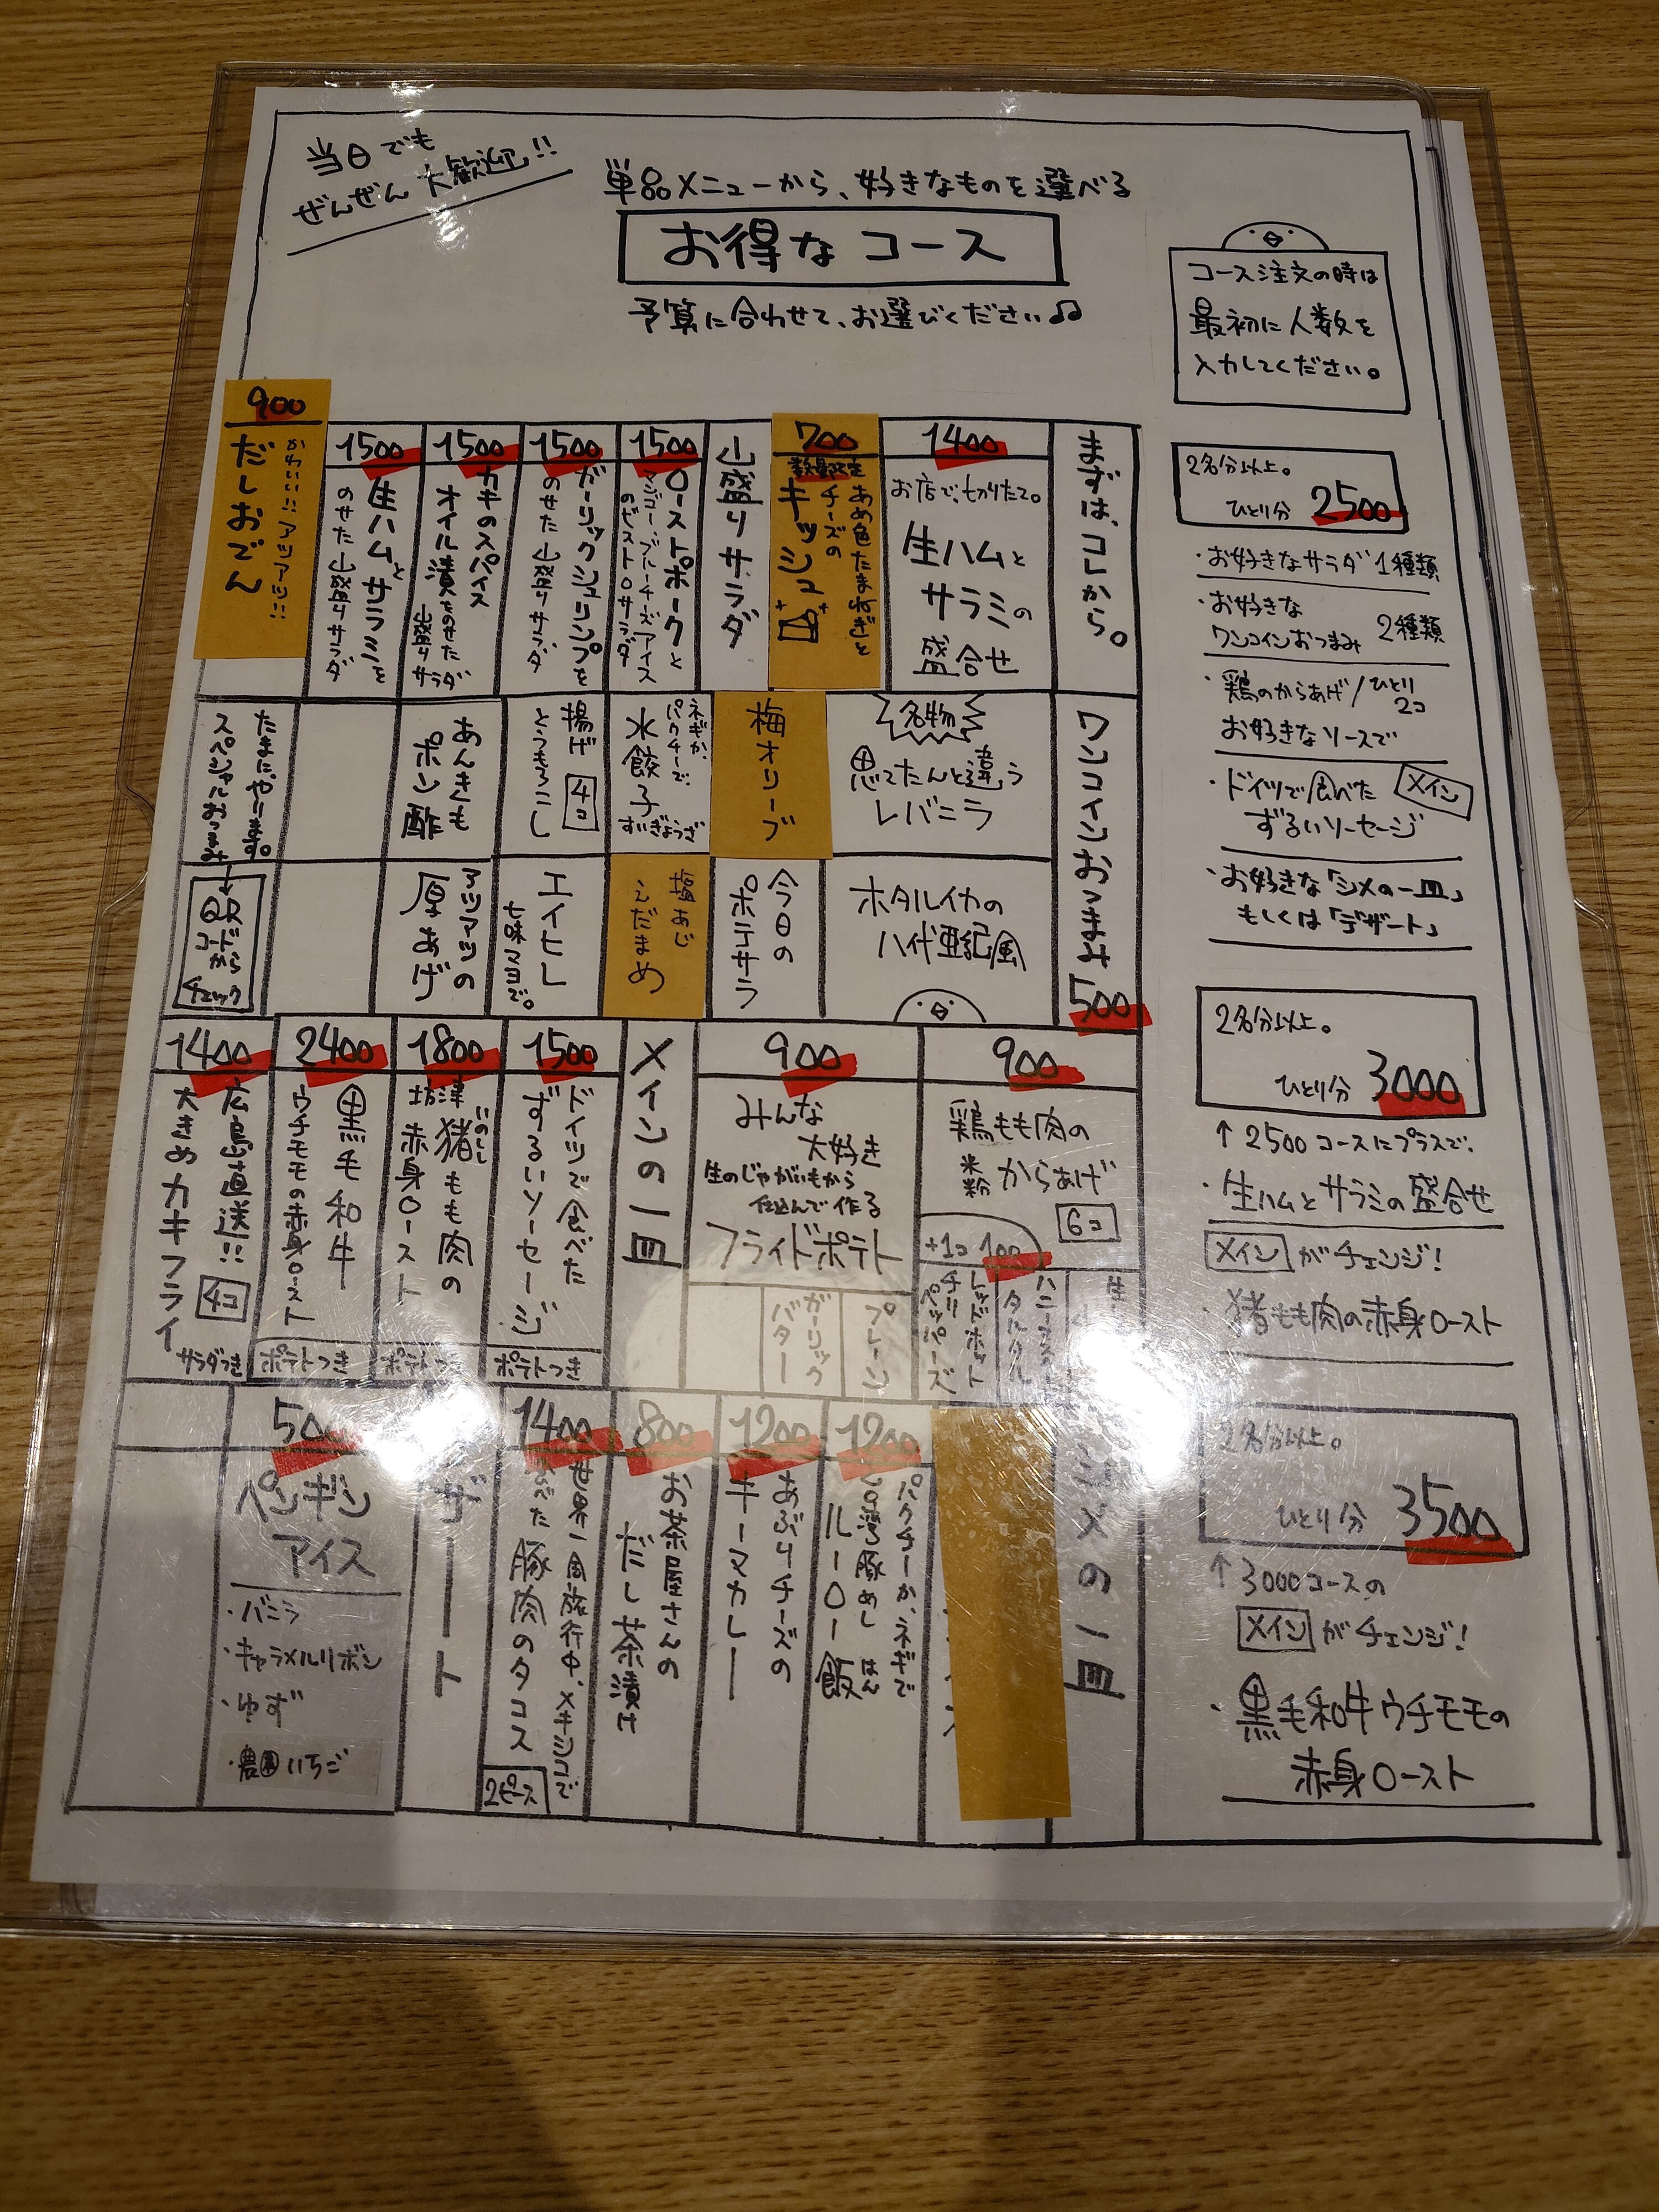 当日でも
ぜんぜん大歓迎!!
単品メニューから、好きなものを選べる
お得なコース
予算に合わせて、お選びください♫
コース注文の時は
最初に人数を
入力してください。
2名分以上。
ひとり分 2500
・お好きなサラダ 1種類
・お好きな
ワンコインおつまみ 2種類
・鶏のからあげ/ひとり2コ
お好きなソースで
・ドイツで食べた メイン
ずるいソーセージ
・お好きな「シメの一皿」
もしくは「デザート」
2名分以上。
ひとり分 3000
↑2500コースにプラスで、
・生ハムとサラミの盛合せ
メイン がチェンジ!
・猪もも肉の赤身ロースト
2名分以上。
ひとり分 3500
↑3000コースの
メイン がチェンジ!
・黒毛和牛ウチモモの
赤身ロースト
まずは、コレから。
1400
お店で、切りたて。
生ハムと
サラミの
盛合せ
700
数量限定
あめ色たまねぎと
チーズの
キッシュ
山盛りサラダ
1500
ローストポークと
マンゴー、ブルーチーズアイス
のせ
1500
ガーリックシュリンプを
のせた山盛りサラダ
1500
カキのスパイス
オイル漬をのせた
山盛りサラダ
1500
生ハムとサラミを
のせた山盛りサラダ
900
かわいい!!アツアツ!!
だしおでん
ワンコインおつまみ
500
名物
思てたんと違う
レバニラ
梅オリーブ
ネギか、
パクチーで、
水餃子
すいぎょうざ
揚げ
とうもろこし
4コ
あんきも
ポン酢
たまに、やります。
スペシャルおつまみ
↓
QR
コード
から
チェック
ホタルイカの
八代亜紀風
今日の
ポテサラ
塩あじ
えだまめ
エイヒレ
七味マヨで。
アツアツの
厚あげ
900
鶏もも肉の
米粉
からあげ
6コ
+1コ 100
生
ハニー
タルタル
レッドホット
チリ
ペッパーズ
900
みんな
大好き
生のじゃがいもから
仕込んで作る
フライドポテト
プレーン
ガーリック
バター
メインの一皿
1500
ドイツで食べた
ずるいソーセージ
ポテトつき
1800
坊津
いのしし
猪もも肉の
赤身ロースト
ポテト
2400
黒毛和牛
ウチモモの赤身ロースト
ポテトつき
1400
広島直送!!
大きめカキフライ
4コ
サラダつき
シメの一皿
1200
パクチーか、ネギで
台湾豚めし
はん
ルーロー飯
1200
あぶりチーズの
キーマカレー
800
お茶屋さんの
だし茶漬け
1400
世界一周旅行中、メキシコで
食べた豚肉のタコス
2ピース
デザート
500
ペンギン
アイス
・バニラ
・キャラメルリボン
・ゆず
・農園いちご